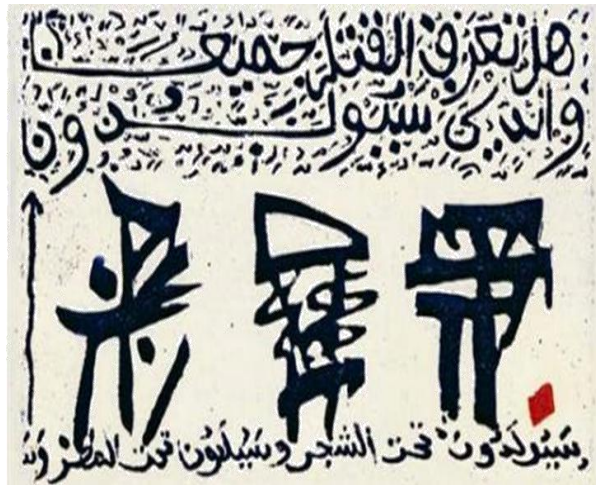 هل تعرف القتلى جميعا
والذين سيولدون
سيولدون تحت الشجر وسيولدون تحت المطر